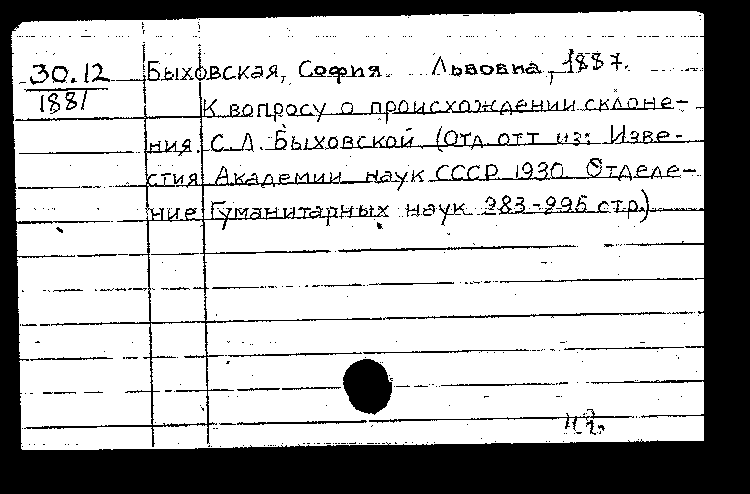 30.12 Быховская, София Львовна, 1887.
1881
К вопросу о происхождении склоне-
ния. С. Л. Быховской (Отд. отт из: Изве-
стия Академии наук СССР 1930. Отделе-
ние Гуманитарных наук 983-995 стр.)